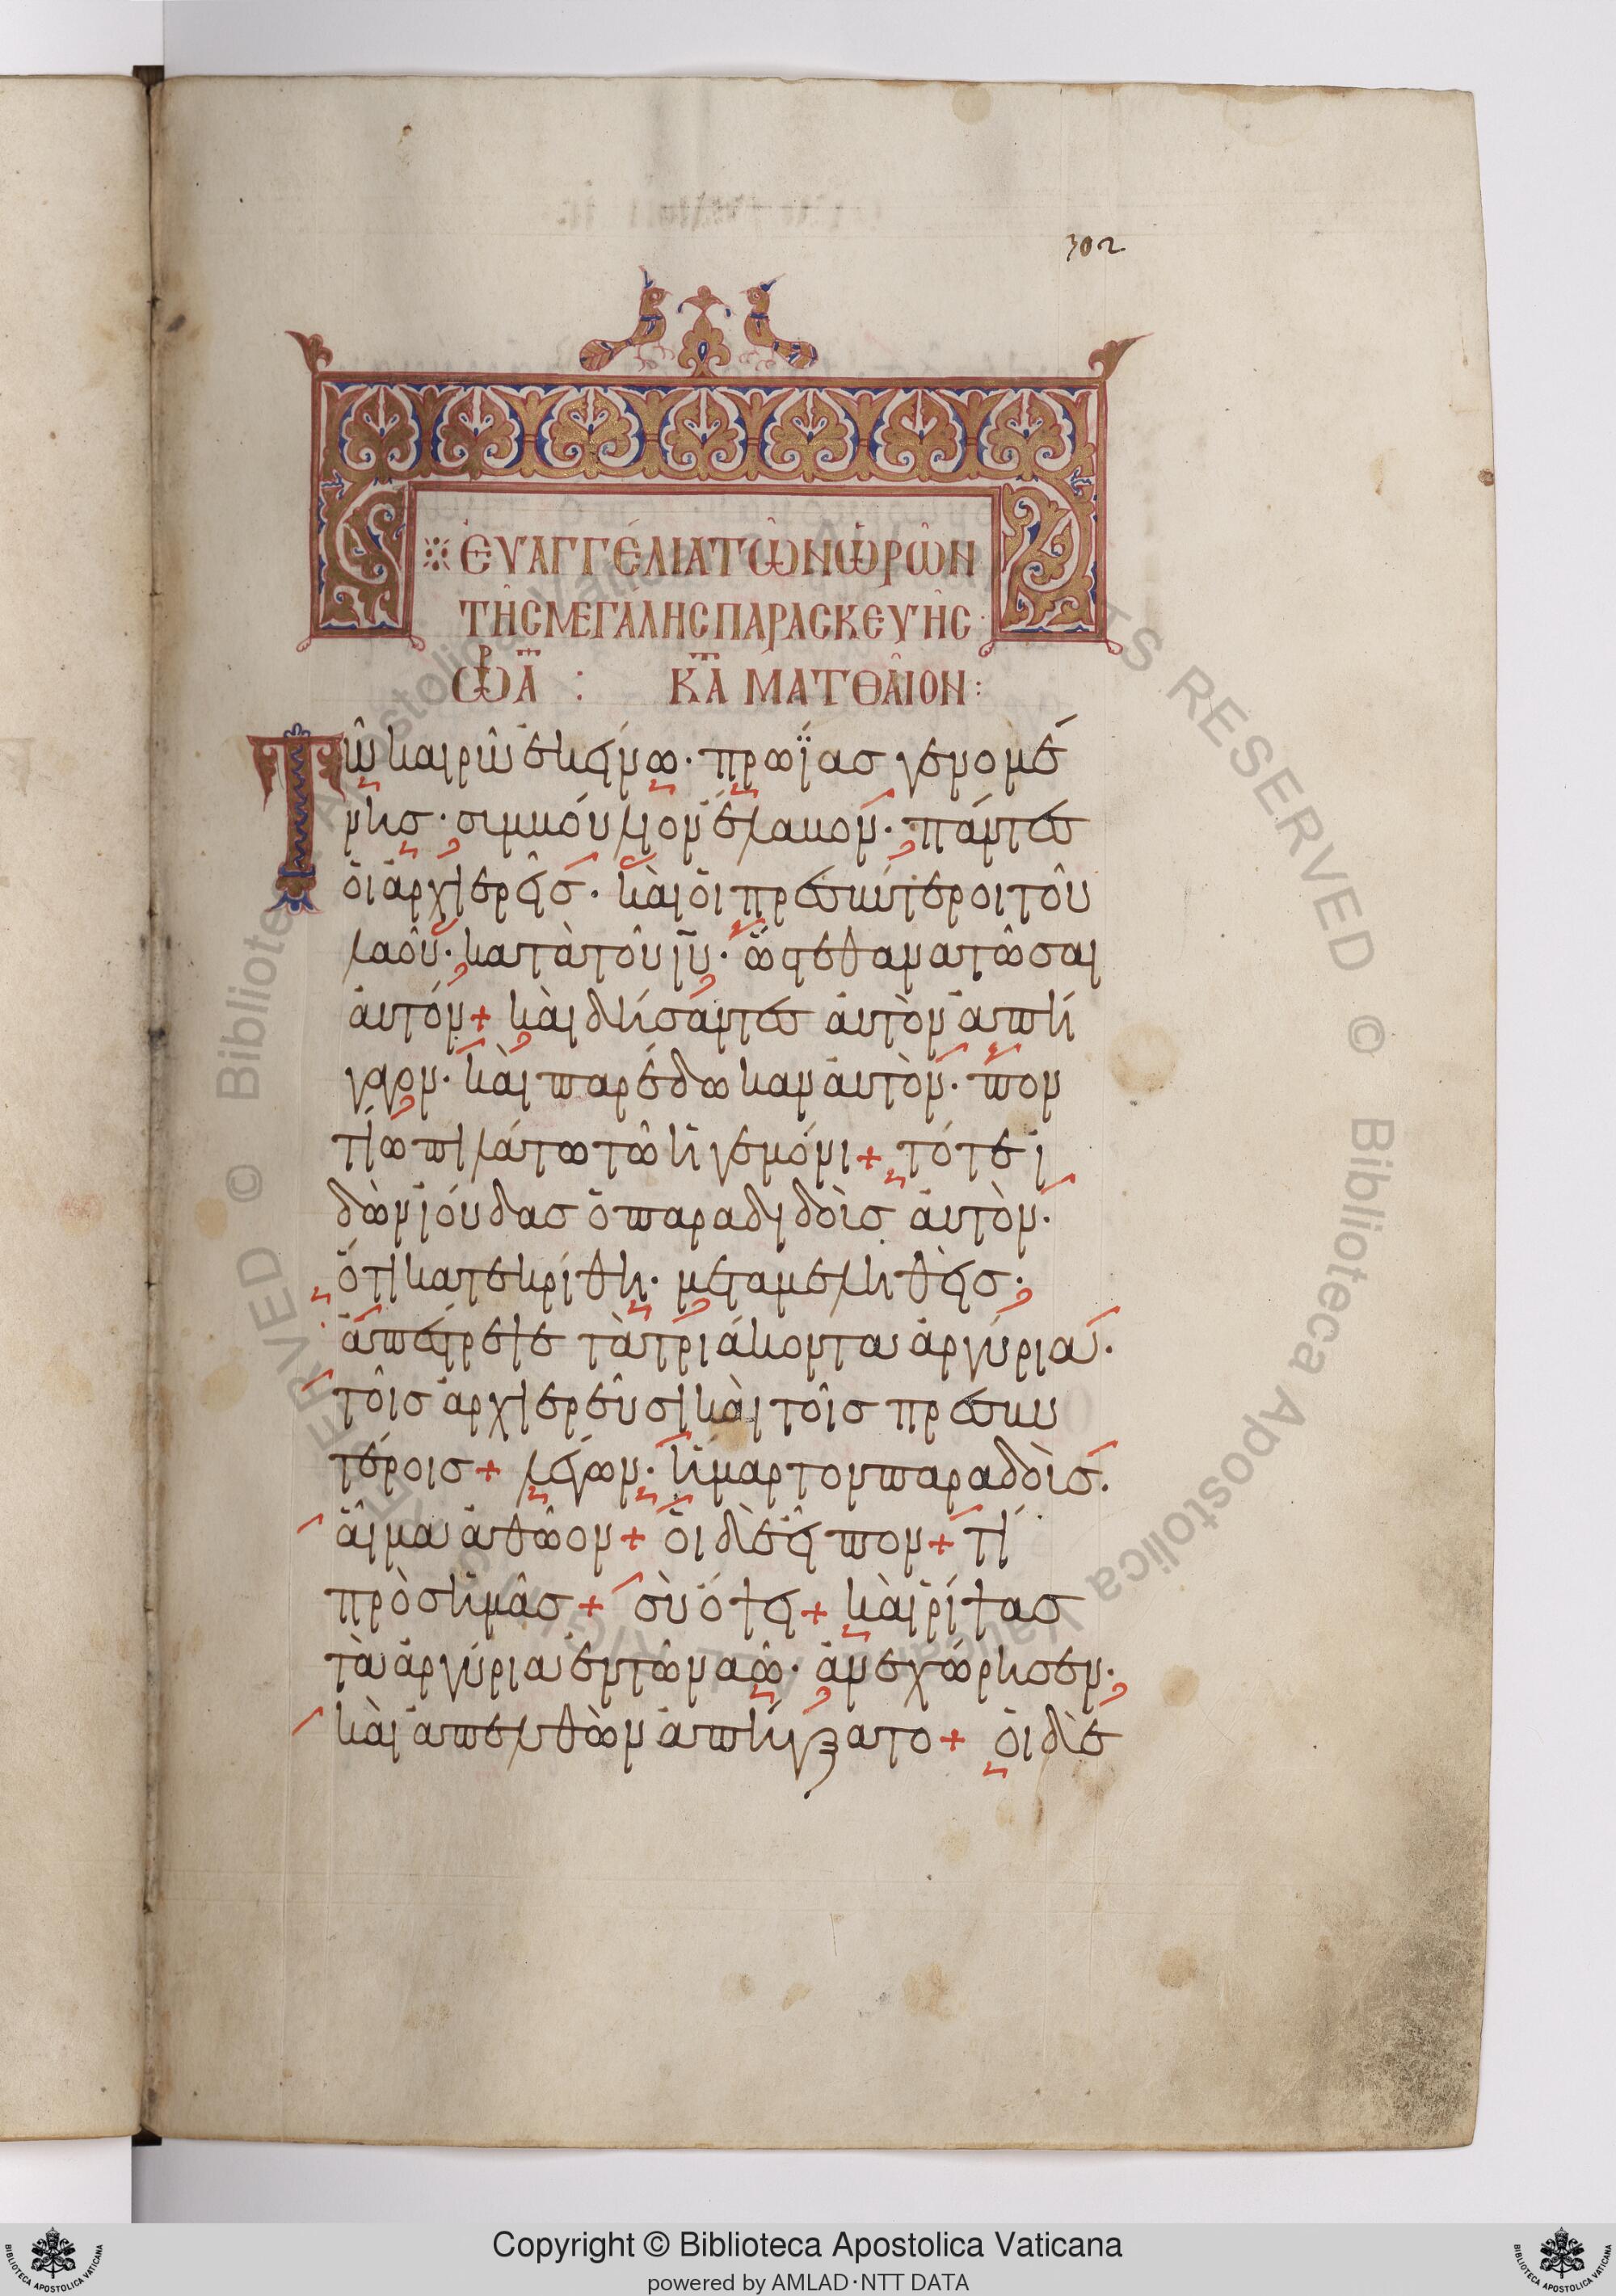 302
ΕΥΑΓΓΈΛΙΑ ΤΩ͂Ν ὩΡΩ͂Ν
ΤΗ͂Σ ΜΕΓΆΛΗΣ ΠΑΡΑΣΚΕΥΗ͂Σ·
ὩΡ Α : ΚΤ Α ΜΑΤΘΑΙ͂ΟΝ:
Τῶ καιρῶ ἐκείνω· πρωΐας γενομέ
νης· συμβούλιον ἔλαβον· πάντες
οἱ ἀρχιερεῖς· καὶ οἱ πρεσβύτεροι τοῦ
λαοῦ· κατὰ τοῦ ιυ· ὥστε θανατῶσαι
αὐτόν + καὶ δήσαντες αὐτὸν ἀπή
γαγον· καὶ παρέδωκαν αὐτὸν· πον
τίω πιλάτω τῶ ἡγεμόνι + τότε ἰ
δὼν ἰούδας ὁ παραδιδοὺς αὐτὸν·
ὅτι κατεκρίθη· μεταμεληθεὶς·
ἀπέστρεψε τὰ τριάκοντα ἀργύρια·
τοῖς ἀρχιερεῦσι καὶ τοῖς πρεσβυ
τέροις + λέγων· ἥμαρτον παραδοὺς·
αἷμα ἀθῶον + οἱ δὲ εἶπον + τί
πρὸς ἡμᾶς + σὺ ὄψει + καὶ ῥίψας
τὰ ἀργύρια ἐν τῶ ναῶ· ἀνεχώρησεν·
καὶ ἀπελθὼν ἀπήγξατο + οἱ δὲ
Copyright © Biblioteca Apostolica Vaticana
powered by AMLAD·NTT DATA